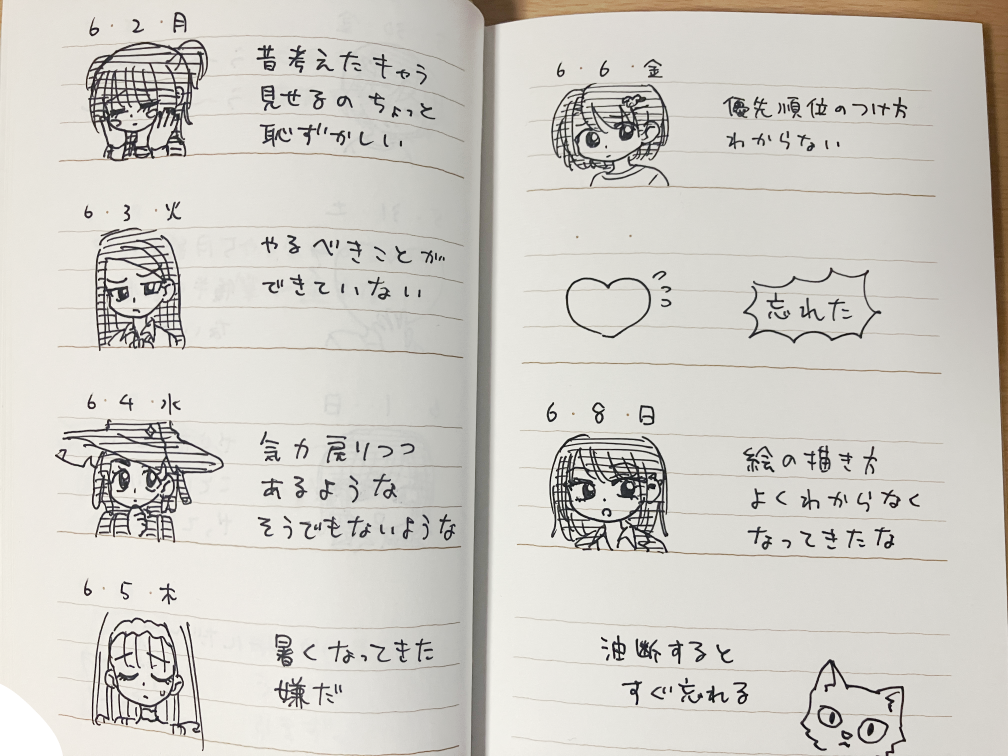 6・2・月
昔考えたキャラ
見せるの ちょっと
恥ずかしい
6・3・火
やるべきことが
できていない
6・4・水
気力戻りつつ
あるような
そうでもないような
6・5・木
暑くなってきた
嫌だ
6・6・金
優先順位のつけ方
わからない
忘れた
6・8・日
絵の描き方
よくわからなく
なってきたな
油断すると
すぐ忘れる